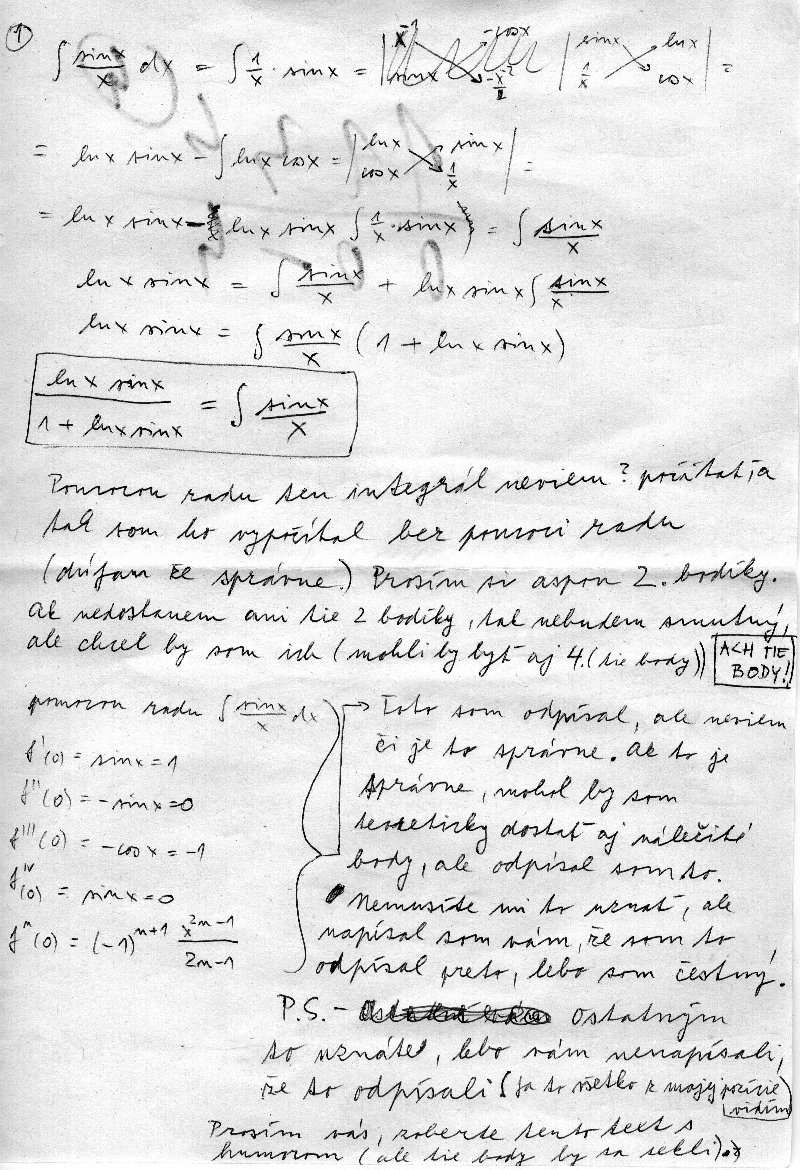 1
∫ sinx/x dx = ∫ 1/x · sinx = | x⁻¹ -cosx sinx -x⁻²/2 | sinx lnx 1/x cosx | =
= lnx sinx - ∫ lnx cosx = | lnx sinx cosx 1/x | =
= lnx sinx - lnx sinx ∫ 1/x · sinx = ∫ sinx/x
lnx sinx = ∫ sinx/x + lnx sinx ∫ sinx/x
lnx sinx = ∫ sinx/x (1 + lnx sinx)
lnx sinx / 1 + lnx sinx = ∫ sinx/x
Pomocou radu ten integrál neviem ? počítať, a
tak som ho vypočítal bez pomoci radu
(dúfam že správne.) Prosím si aspon 2. bodíky.
Ak nedostanem ani tie 2 bodíky, tak nebudem smutný,
ale chcel by som ich (mohli by byť aj 4. (tie body))
ACH TIE
BODY!
pomocou radu ∫ sinx/x dx
f'(0) = sinx = 1
f''(0) = -sinx = 0
f'''(0) = -cosx = -1
f^IV(0) = sinx = 0
f^n(0) = (-1)^n+1 x^2n-1 / 2n-1
Toto som odpísal, ale neviem
či je to správne. Ak to je
správne, mohol by som
teoreticky dostať aj náležité
body, ale odpísal som to.
Nemusíte mi to uznať, ale
napísal som vám, že som to
odpísal preto, lebo som čestný.
P.S. - ostatným
to uznáte, lebo vám nenapísali,
že to odpísali (Ja to všetko z mojej pozície
vidím)
Prosím vás, zoberte tento text s
humorom (ale tie body by sa sekli)